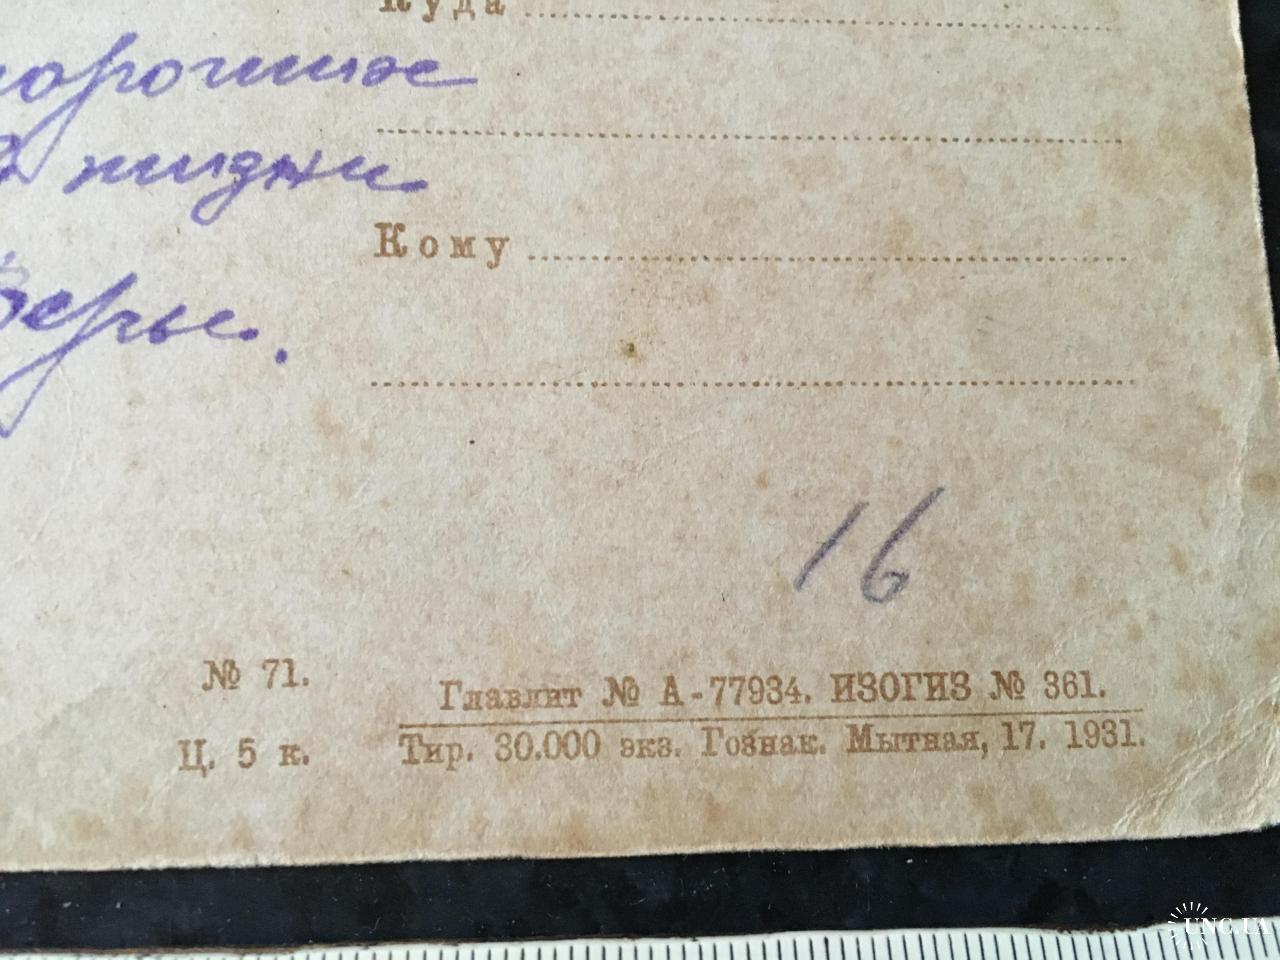 Куда
жизни
Кому
16
№ 71.
Ц. 5 к.
Главлит № А-77934. ИЗОГИЗ № 361.
Тир. 30.000 экз. Гознак. Мытная, 17. 1931.
UNC.UA